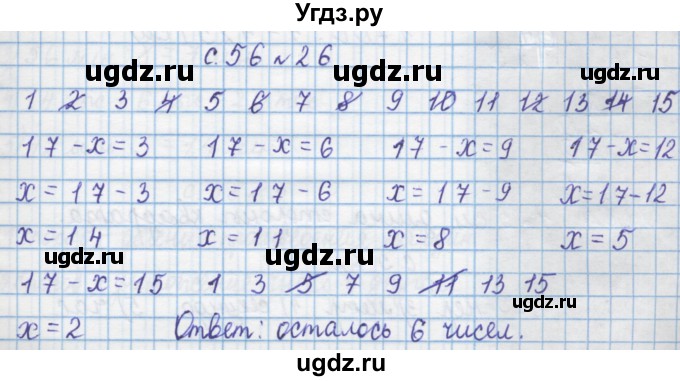 Угдз.ру
с. 56 № 26
ugdz.ru ugdz.ru
1 2 3 4 5 6 7 8 9 10 11 12 13 14 15
ugdz.ru ugdz.ru
17 - x = 3 17 - x = 6 17 - x = 9 17 - x = 12
x = 17 - 3 x = 17 - 6 x = 17 - 9 x = 17 - 12
ugdz.ru ugdz.ru
x = 14 x = 11 x = 8 x = 5
17 - x = 15 1 3 5 7 9 11 13 15
ugdz.ru ugdz.ru
x = 2 Ответ: осталось 6 чисел.
ugdz.ru